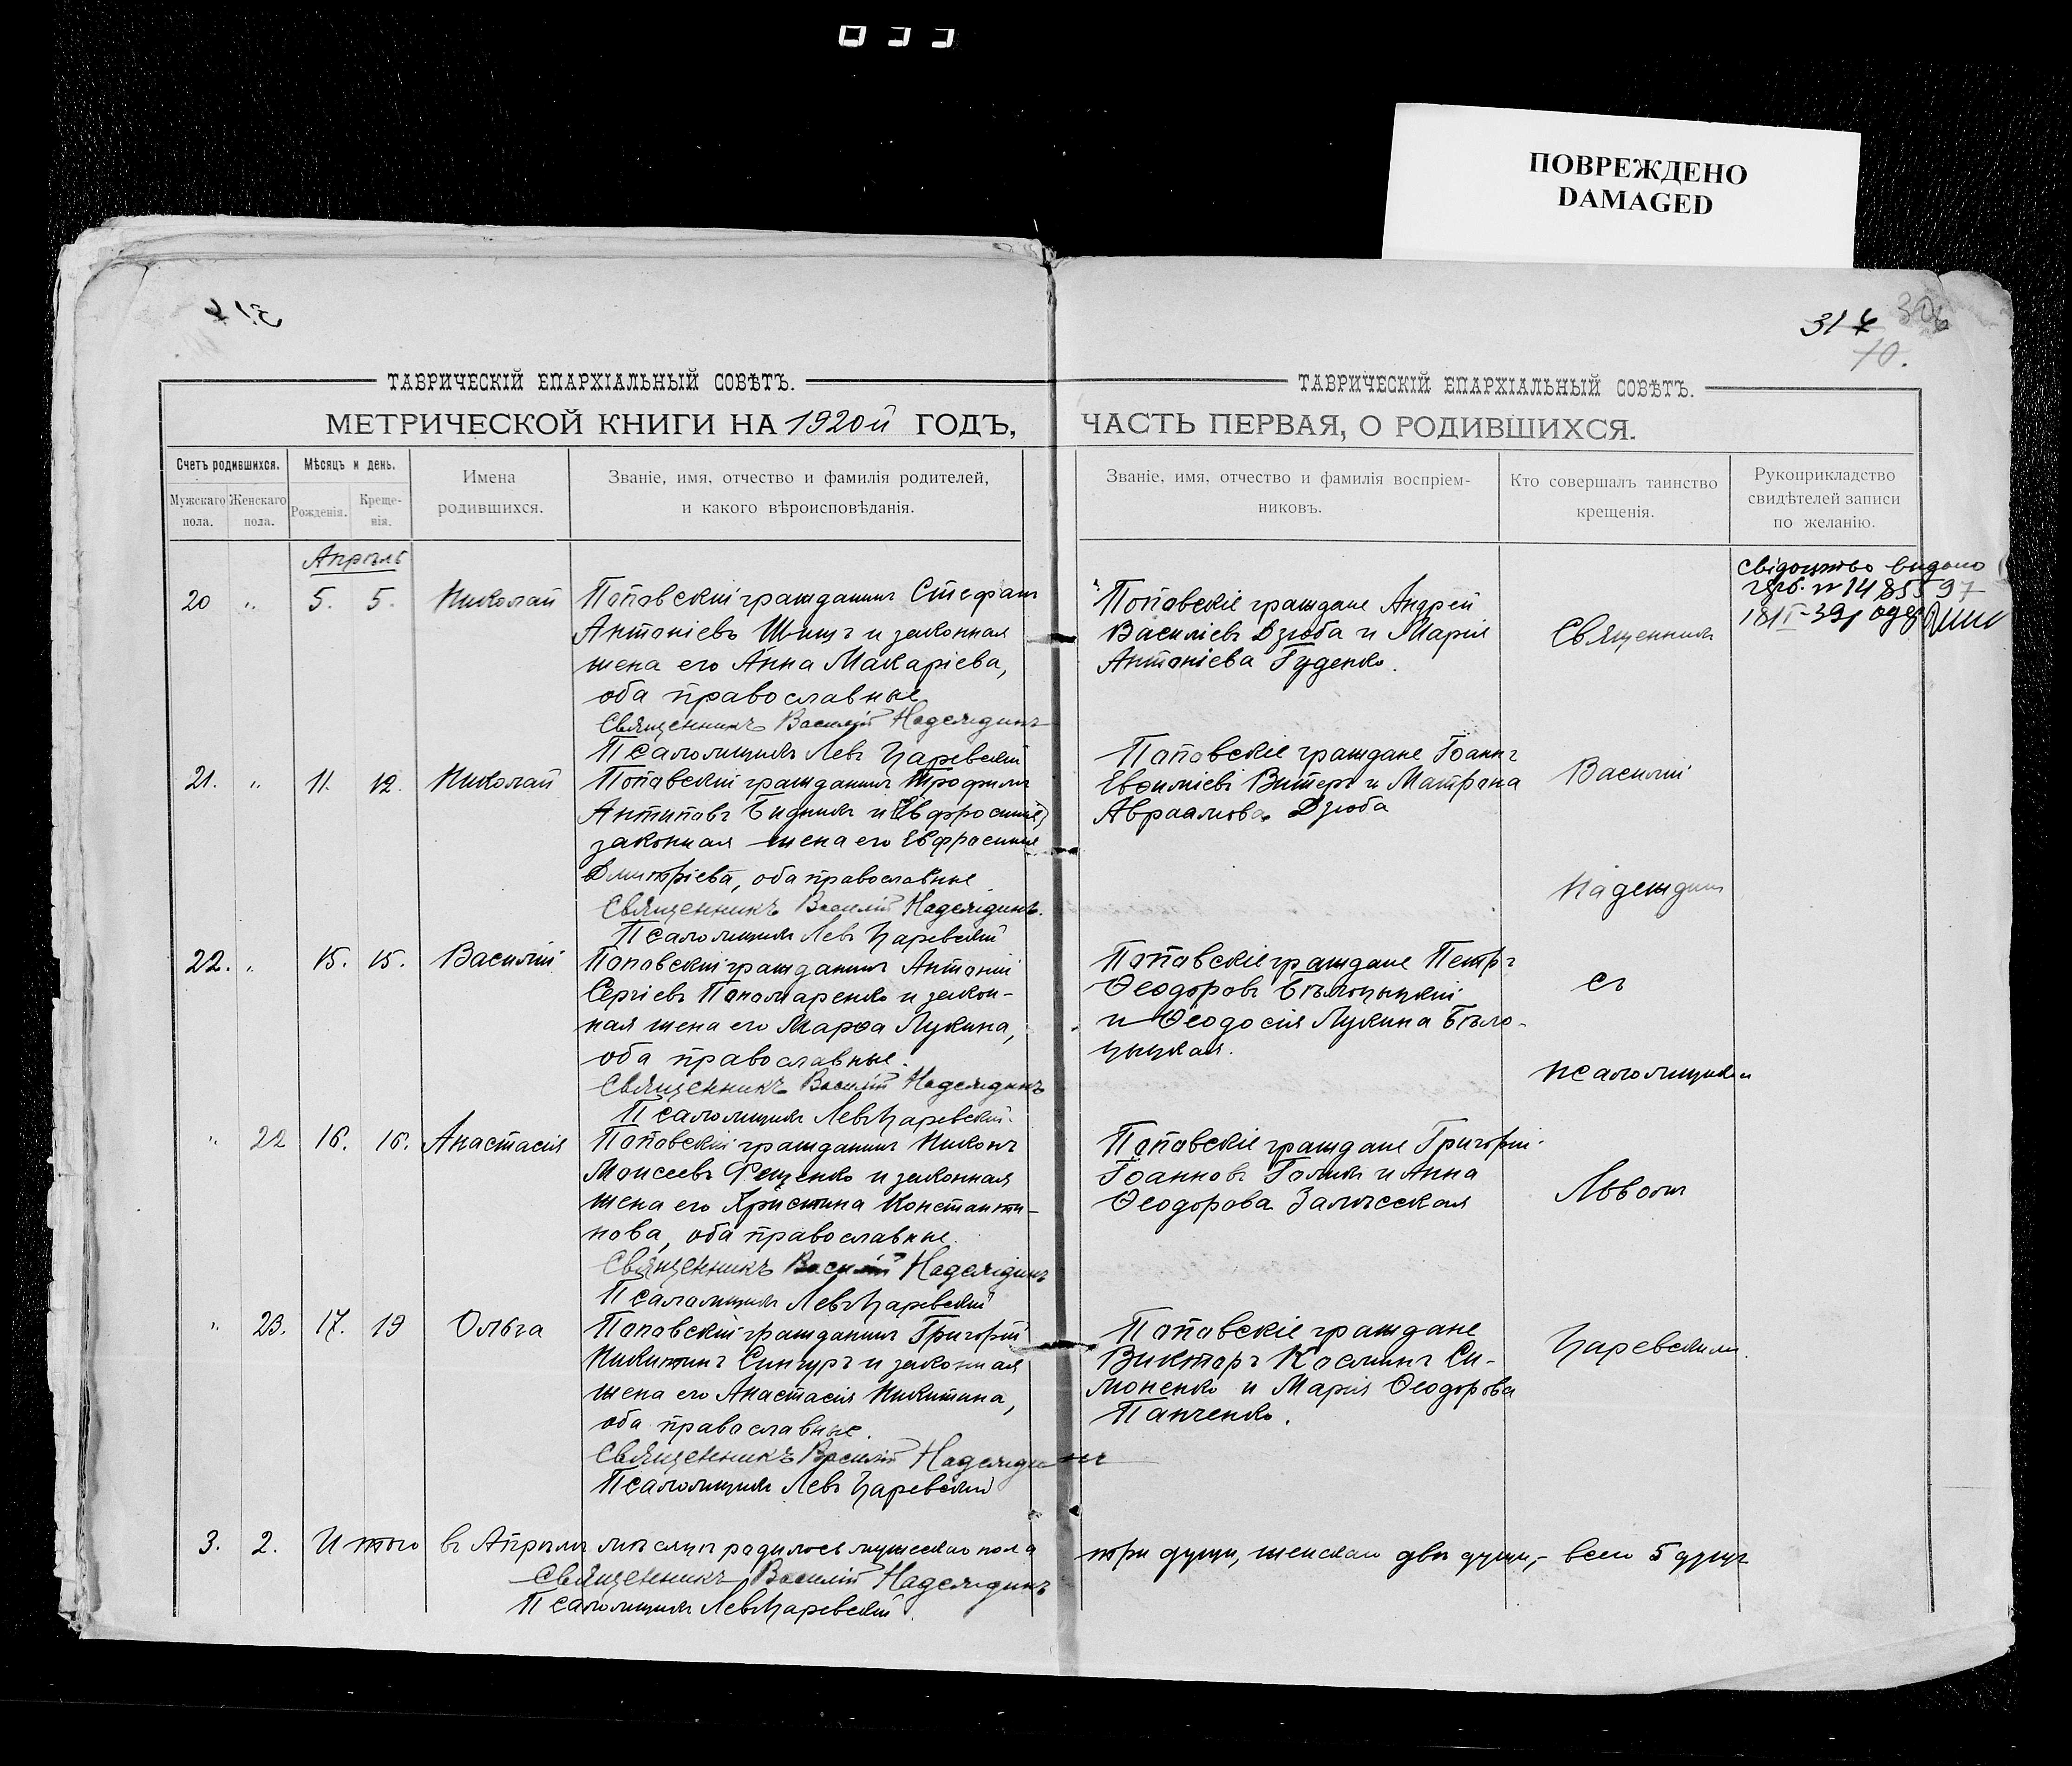 ПОВРЕЖДЕНО
DAMAGED
314
10.
ТАВРИЧЕСКІЙ ЕПАРХІАЛЬНЫЙ СОВѢТЪ.
МЕТРИЧЕСКОЙ КНИГИ НА 1920й ГОДЪ,
Счетъ родившихся.
Мужскаго пола.
Женскаго пола.
Мѣсяцъ и день.
Рожденія.
Креще-
нія.
Имена
родившихся.
Званіе, имя, отчество и фамилія родителей,
и какого вѣроисповѣданія.
Апрѣль
20 " 5. 5. Николай
Поповскій гражданинъ Стефанъ
Антоніевъ и законная
жена его Анна Макаріева,
оба православные
Священникъ Василій Надеждинъ
Псаломщикъ Левъ Царевскій
21. " 11. 12. Николай
Поповскій гражданинъ Трофимъ
Антиповъ Бидникъ и Евфросинія,
законная жена его Евфросинія
Дмитріева, оба православные
Священникъ Василій Надеждинъ.
Псаломщикъ Левъ Царевскій
22. " 15. 15. Василій
Поповскій гражданинъ Антоній
Сергіевъ Пономаренко и закон-
ная жена его Марѳа Лукина,
оба православные.
Священникъ Василій Надеждинъ
Псаломщикъ Левъ Царевскій.
" 22 16. 16. Анастасія
Поповскій гражданинъ Никонъ
Моисеевъ Фещенко и законная
жена его Христина Константи-
нова, оба православные.
Священникъ Василій Надеждинъ
Псаломщикъ Левъ Царевскій
" 23. 17. 19 Ольга
Поповскій гражданинъ Григорій
Никитинъ Сингуръ и законная
жена его Анастасія Никитина,
оба православные.
Священникъ Василій Надеждинъ
Псаломщикъ Левъ Царевскій
3. 2. Итого въ Апрѣлѣ мѣсяцѣ родилось мужескаго пола
Священникъ Василій Надеждинъ
Псаломщикъ Левъ Царевскій.
ТАВРИЧЕСКІЙ ЕПАРХІАЛЬНЫЙ СОВѢТЪ.
ЧАСТЬ ПЕРВАЯ, О РОДИВШИХСЯ.
Званіе, имя, отчество и фамилія воспріем-
никовъ.
Кто совершалъ таинство
крещенія.
Рукоприкладство
свидѣтелей записи
по желанію.
Поповскіе граждане Андрей
Василіевъ Дзюба и Марія
Антоніева Гуденко.
Поповскіе граждане Іоаннъ
Евѳиміевъ Витеръ и Матрона
Авраамова Дзюба
Поповскіе граждане Петръ
Ѳеодоровъ Бѣлоцыцкій
и Ѳеодосія Лукина Бѣло-
цыцкая.
Поповскіе граждане Григорій
Іоанновъ Голикъ и Анна
Ѳеодорова Залѣсская
Поповскіе граждане
Викторъ Косминъ Си-
моненко и Марія Ѳеодорова
Панченко.
Священникъ
Василій
Надеждинъ
съ
псаломщикомъ
Львомъ
Царевскимъ.
свідоцтво видано
три души, женскаго двѣ души, - всего 5 душъ